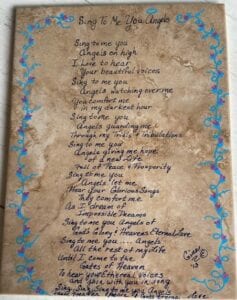 Sing To Me You Angels
Sing to me you
Angels on high
I love to hear
Your beautiful voices
Sing to me you
Angels watching over me
You comfort me
in my darkest hour
Sing to me you
Angels guarding me
Through my trials & tribulations
Sing to me you
Angels giving me hope
Of a new life
full of Peace & Prosperity
Sing to me you
Angels let me
Hear your Glorious Songs
They comfort me
As I dream of
Impossible Dreams
Sing to me you Angels of
God's Glory & Heavens Eternal Love
Sing to me you .... Angels
All the rest of my life
Until I come to the
Gates of Heaven
To hear your voices
and join with you in song
Sing to me you Angels
Love